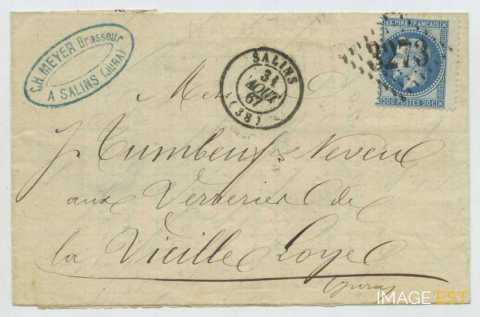 CH. MEYER Brasseur
A SALINS (JURA)
SALINS
31
AOUT
67
(38)
EMPIRE FRANÇAIS
3273
20C POSTES 20C
Neveu
aux Verreries de
la Vieille Loye
Jura
IMAGE'EST